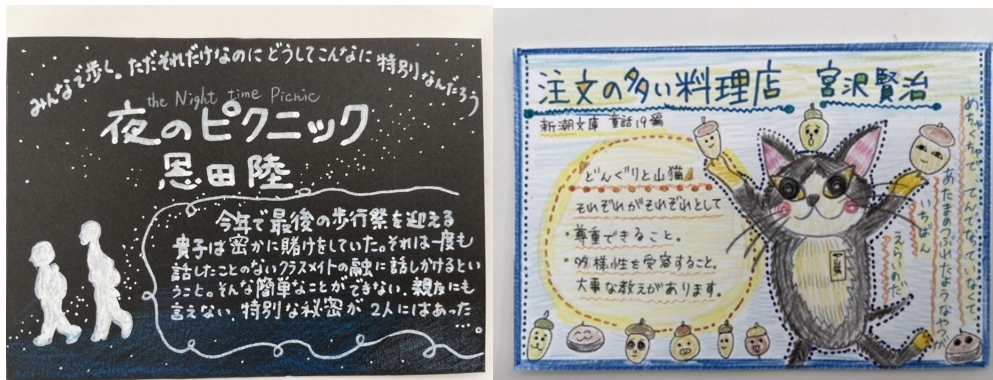 みんなで歩く。ただそれだけなのに どうしてこんなに 特別なんだろう
the Night time Picnic
夜のピクニック
恩田陸
今年で最後の歩行祭を迎える
貴子は密かに賭けをしていた。それは一度も
話したことのないクラスメイトの融に話しかけるとい
うこと。そんな簡単なことができない。親友にも
言えない、特別な秘密が 2人にはあった…
注文の多い料理店 宮沢賢治
新潮文庫 童話19編
どんぐりと山猫
それぞれがそれぞれとして
・尊重できること。
・多様性を受容すること。
大事な教えがあります。
めちゃくちゃで、てんでなっていなくて、
あたまのつぶれたようなやつが
いちばん
えらいのだ